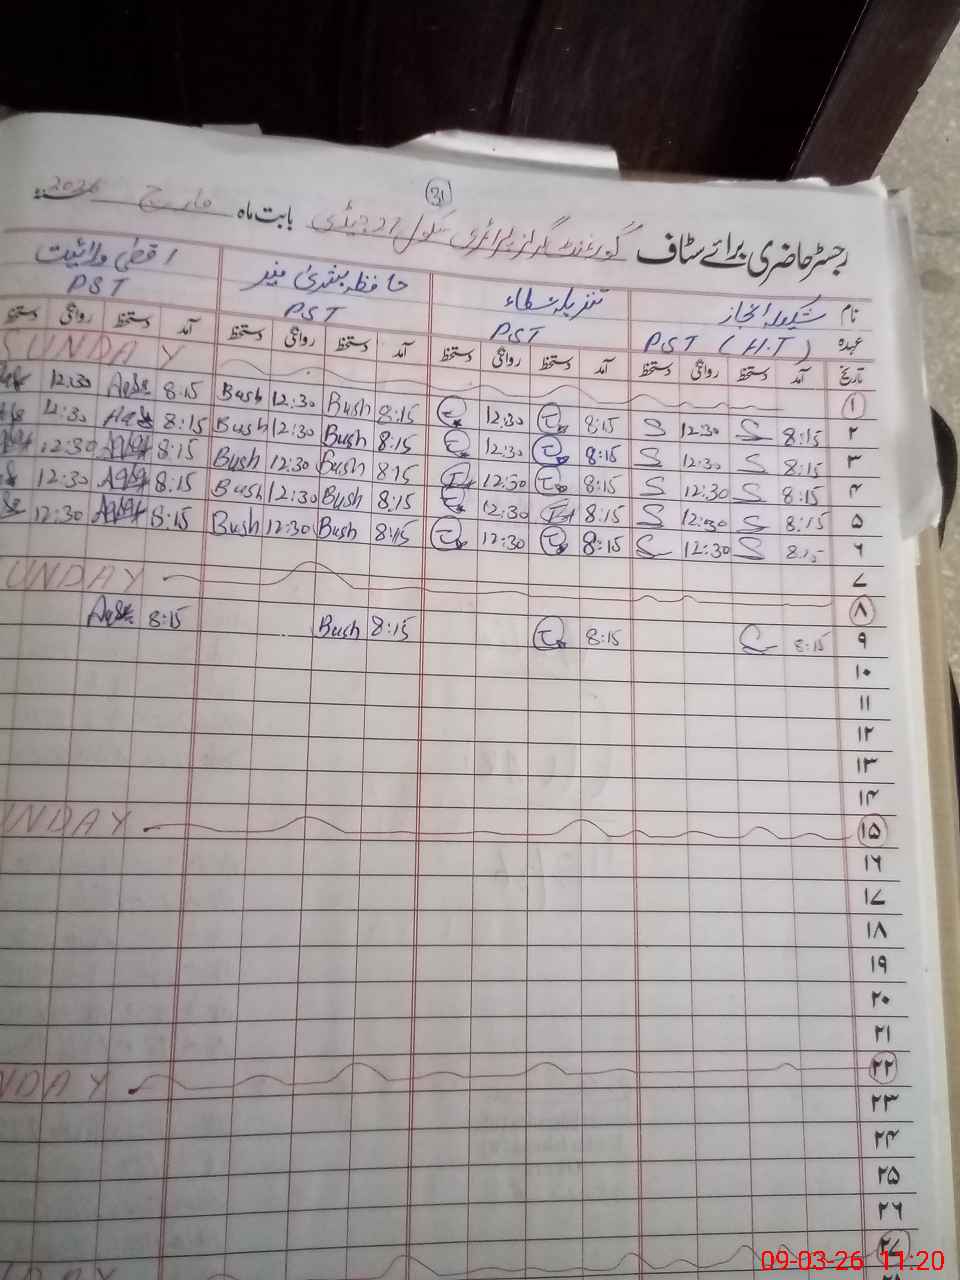 31
رجسٹر حاضری برائے سٹاف گورنمنٹ گرلز پرائمری سکول 27 جیڈی بابت ماہ مارچ 2026
نام شکیلہ اعجاز تنزیلہ عطاء حافظہ بشریٰ منیر
عہدہ PST (H.T) PST PST PST
تاریخ آمد دستخط روانگی دستخط آمد دستخط روانگی دستخط آمد دستخط روانگی دستخط آمد دستخط روانگی دستخط
۱ SUNDAY
۲ 8:15 S 12:30 S 8:15 12:30 8:15 Bush 12:30 Bush 8:15 12:30
۳ 8:15 S 12:30 S 8:15 12:30 8:15 Bush 12:30 Bush 8:15 12:30
۴ 8:15 S 12:30 S 8:15 12:30 8:15 Bush 12:30 Bush 8:15 12:30
۵ 8:15 S 12:30 S 8:15 12:30 8:15 Bush 12:30 Bush 8:15 12:30
۶ 8:15 S 12:30 S 8:15 12:30 8:15 Bush 12:30 Bush 8:15 12:30
۷
۸ UNDAY
۹ 8:15 8:15 8:15 Bush 8:15
۱۰
۱۱
۱۲
۱۳
۱۴
۱۵ UNDAY
۱۶
۱۷
۱۸
۱۹
۲۰
۲۱
۲۲ NDAY
۲۳
۲۴
۲۵
۲۶
۲۷
09-03-26 11:20